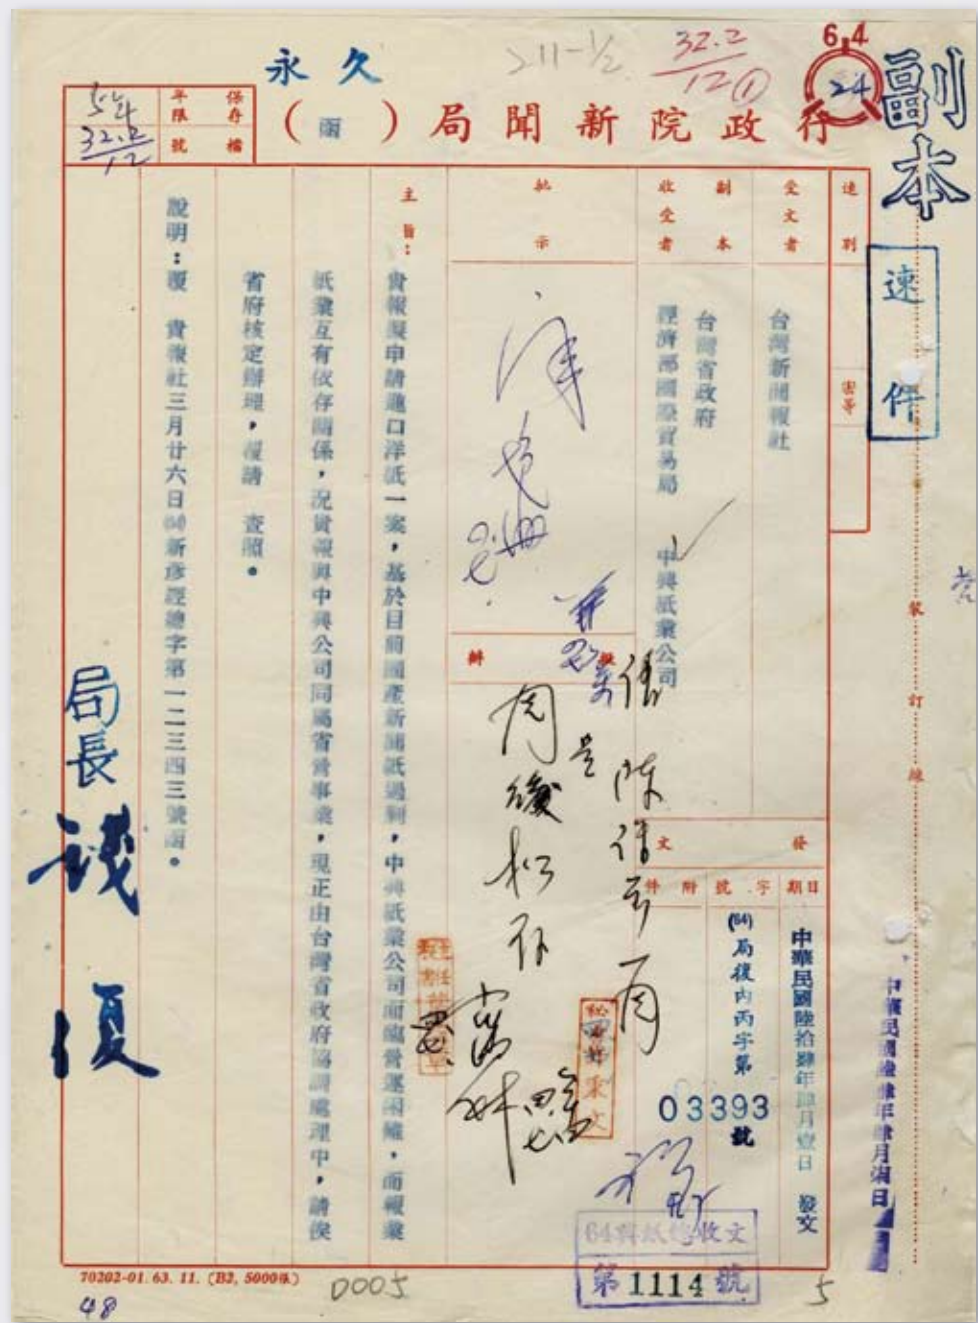 副本
速件
永久
6.4
24
32.2
12①
行政院新聞局（函）
保存年限
5年
檔號
32.2
12
速別
密等
受文者
台灣新聞報社
副本收受者
台灣省政府
經濟部國際貿易局 中興紙業公司
批示
擬辦
發文
日期
中華民國陸拾肆年肆月壹日 發文
字號
(64)局復內丙字第03393號
附件
主旨：貴報擬申請進口洋紙一案，基於目前國產新聞紙過剩，中興紙業公司面臨營運困難，而報業
紙業互有依存關係，況貴報與中興公司同屬省營事業，現正由台灣省政府協調處理中，請俟
省府核定辦理，復請 查照。
說明：覆 貴報社三月廿六日(64)新彥經總字第一二三四三號函。
局長 錢復
裝訂線
64興紙總收文
第1114號
70202-01. 63. 11. (B2, 5000張)
0005
48
5